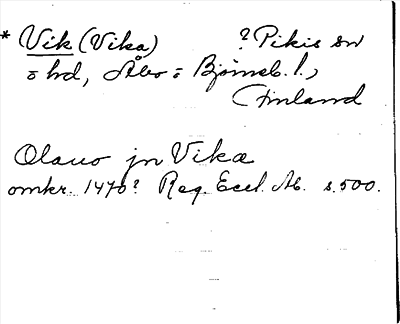 * Vik (Vika) ? Pikis sn
o hd, Åbo o Björneb. l.,
Finland
Olauo jn Vika
omkr. 1470? Reg. Eccl. Ab. s. 500.